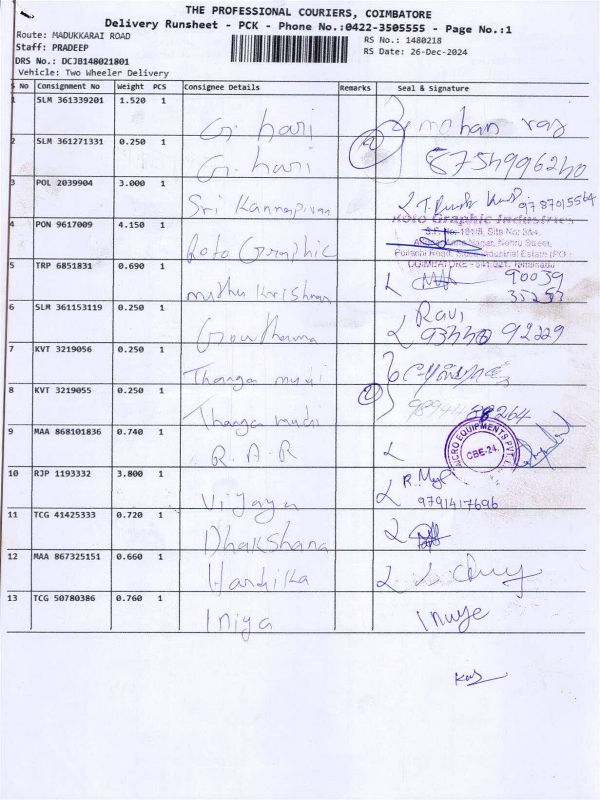 THE PROFESSIONAL COURIERS, COIMBATORE
Delivery Runsheet - PCK - Phone No.:0422-3505555 - Page No.:1
Route: MADUKKARAI ROAD
RS No.: 1480218
Staff: PRADEEP
RS Date: 26-Dec-2024
DRS No.: DCJB148021801
Vehicle: Two Wheeler Delivery
S No Consignment No Weight PCS Consignee Details Remarks Seal & Signature
1 SLM 361339201 1.520 1 G. hari mohan raj
2 SLM 361271331 0.250 1 G. hari 2 8754996240
3 POL 2039904 3.000 1 Sri Kannapiran 9787015564
4 PON 9617009 4.150 1 Roto Graphic Roto Graphic Industries
S.F. No. 191/B, Site No: 3&4,
Nagar, Nehru Street,
COIMBATORE - 641 021. Tamilnadu
5 TRP 6851831 0.690 1 muthu krishnan 90039
35253
6 SLM 361153119 0.250 1 Gowthama Ravi
7 KVT 3219056 0.250 1 Thanga mudi
8 KVT 3219055 0.250 1 Thanga mudi 2
9 MAA 868101836 0.740 1 R. A. R MICRO EQUIPMENTS PVT.
CBE-24.
10 RJP 1193332 3.800 1 Vijaya 9791417696
11 TCG 41425333 0.720 1 Dhakshana
12 MAA 867325151 0.660 1 Hardika
13 TCG 50780386 0.760 1 Iniya